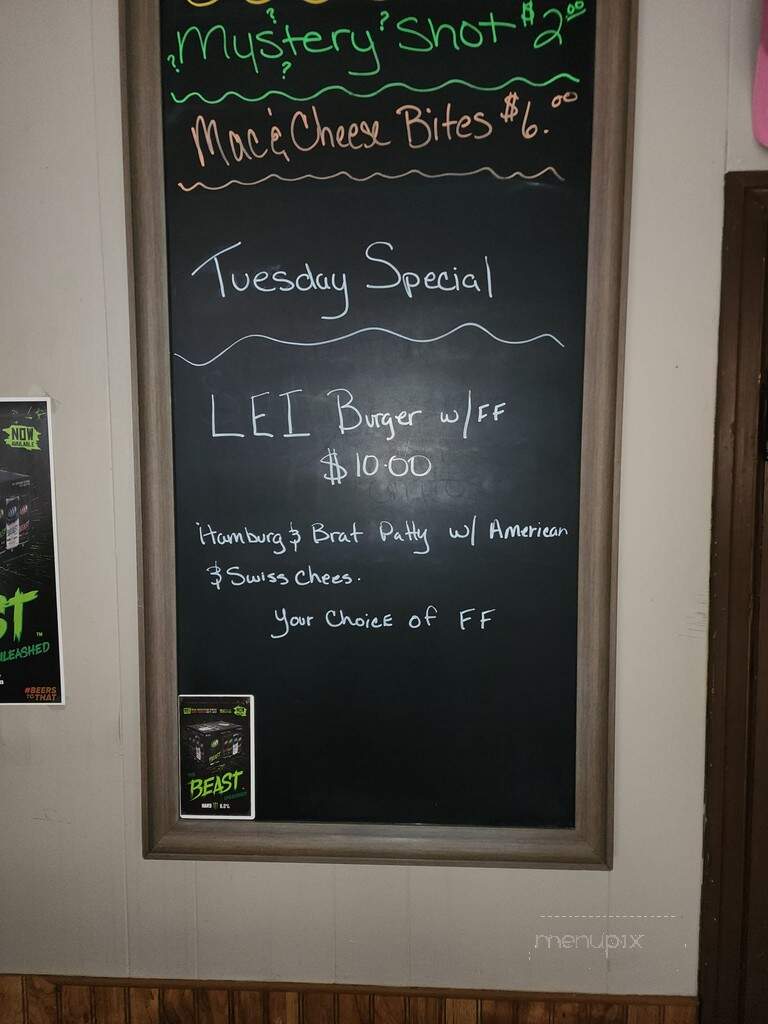 ?Mystery? Shot $2.00
Mac & Cheese Bites $6.00
Tuesday Special
LEI Burger w/FF
$10.00
Hamburg & Brat Patty w/ American
& Swiss Chees.
Your Choice of FF
NOW
AVAILABLE
ST™
NLEASHED
#BEERS
TO THAT
BEAST
HARD 6.0%
menupix